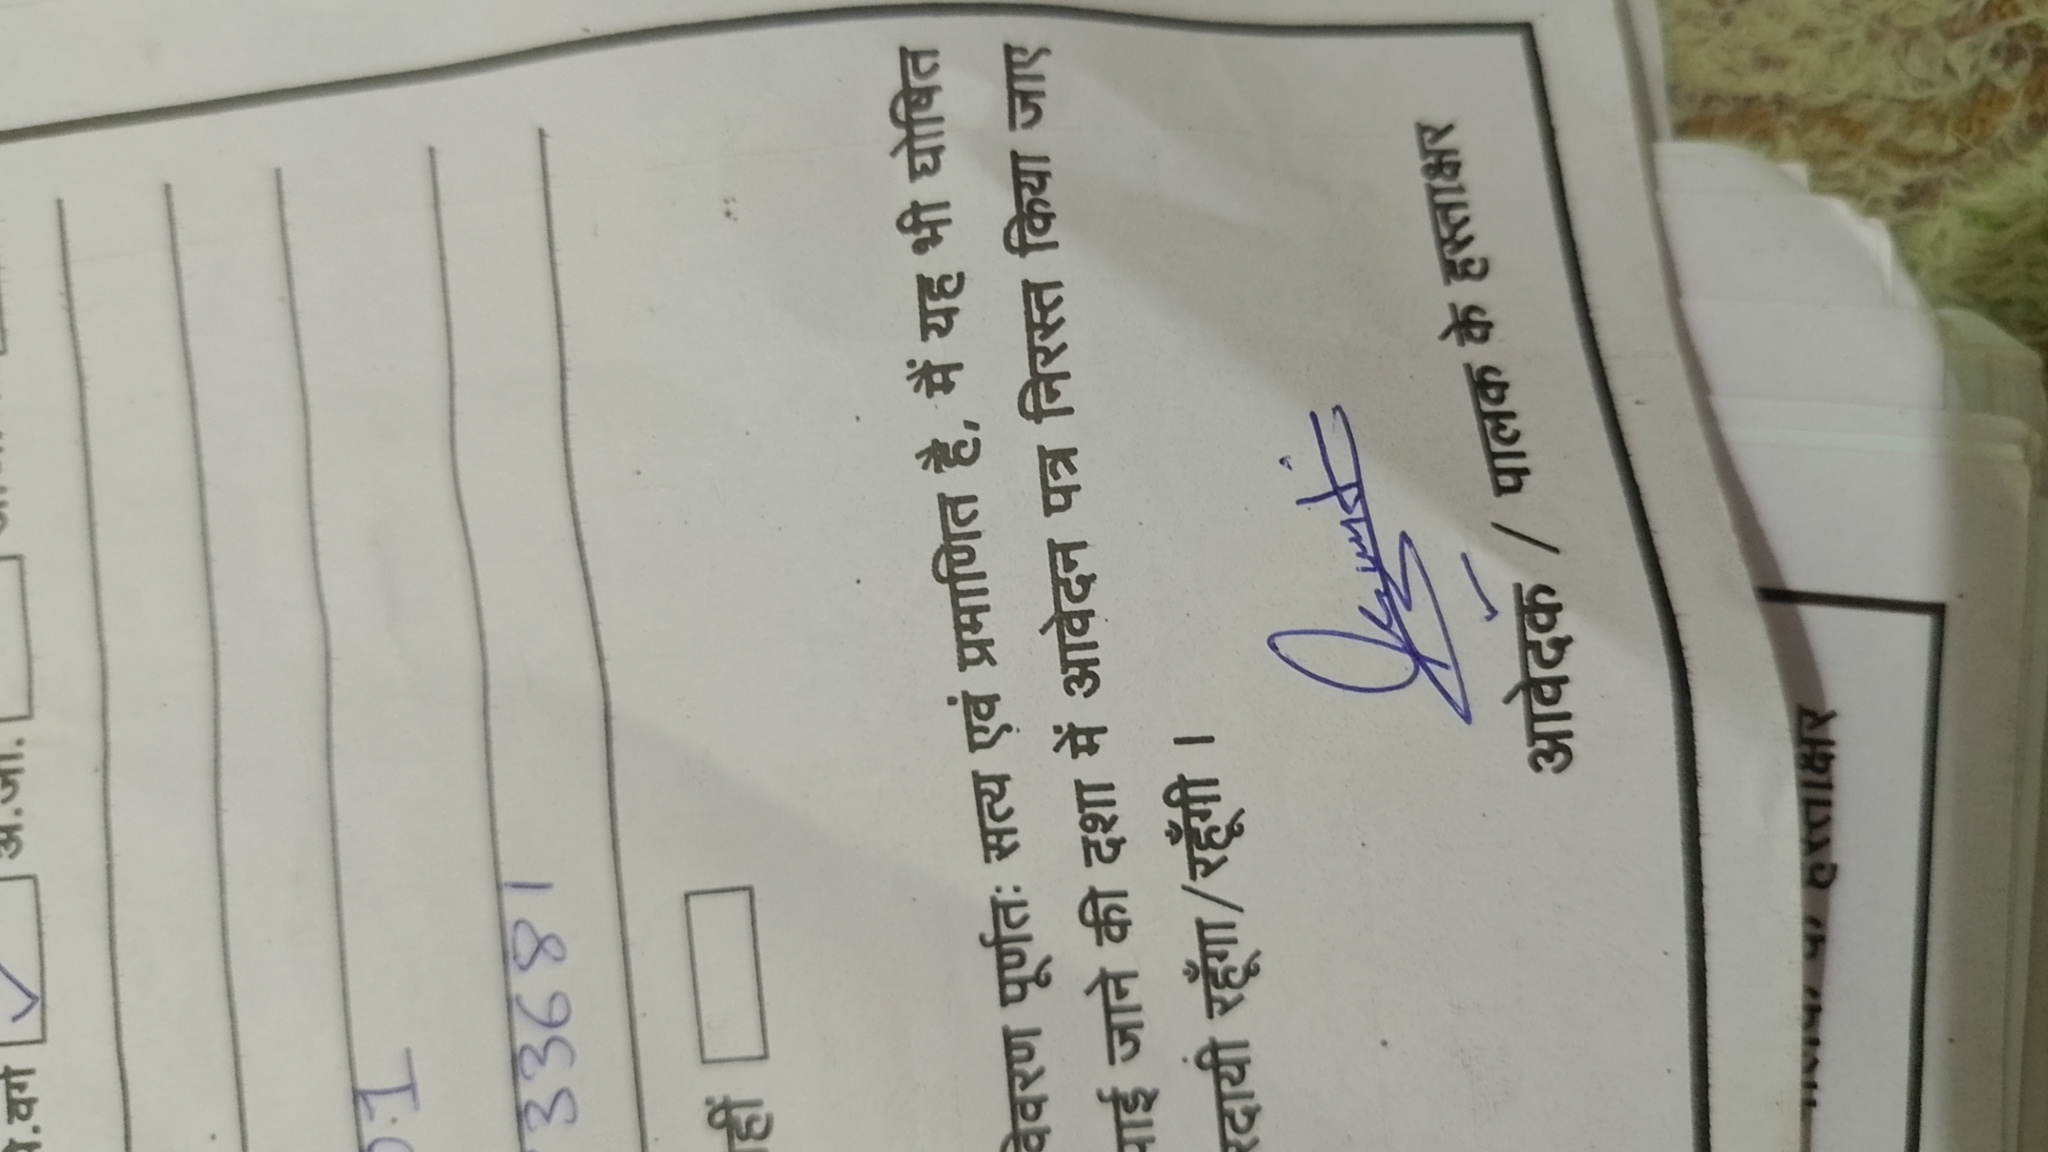 पि.वर्ग ✓ अ.जा.
0.I
33681
हीं
विवरण पूर्णतः सत्य एवं प्रमाणित है, मैं यह भी घोषित
पाई जाने की दशा में आवेदन पत्र निरस्त किया जाए
रदायी रहूँगा/रहूँगी ।
आवेदक / पालक के हस्ताक्षर
पालक के हस्ताक्षर